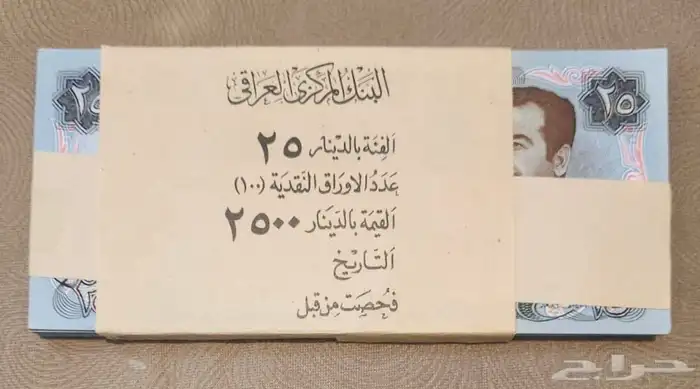 البنك المركزي العراقي
الفئة بالدينار ٢٥
عدد الاوراق النقدية (١٠٠)
القيمة بالدينار ٢٥٠٠
التاريخ
فحصت من قبل
٢٥
٢٥
٢٥
٢٥
حراج